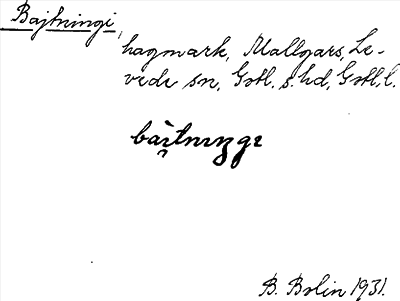 Bajtningi,
hagmark, Mallgars, Le-
vede sn, Gotl. s. hd, Gotl. l.
bai̯tnıŋgı
B. Bolin 1931.